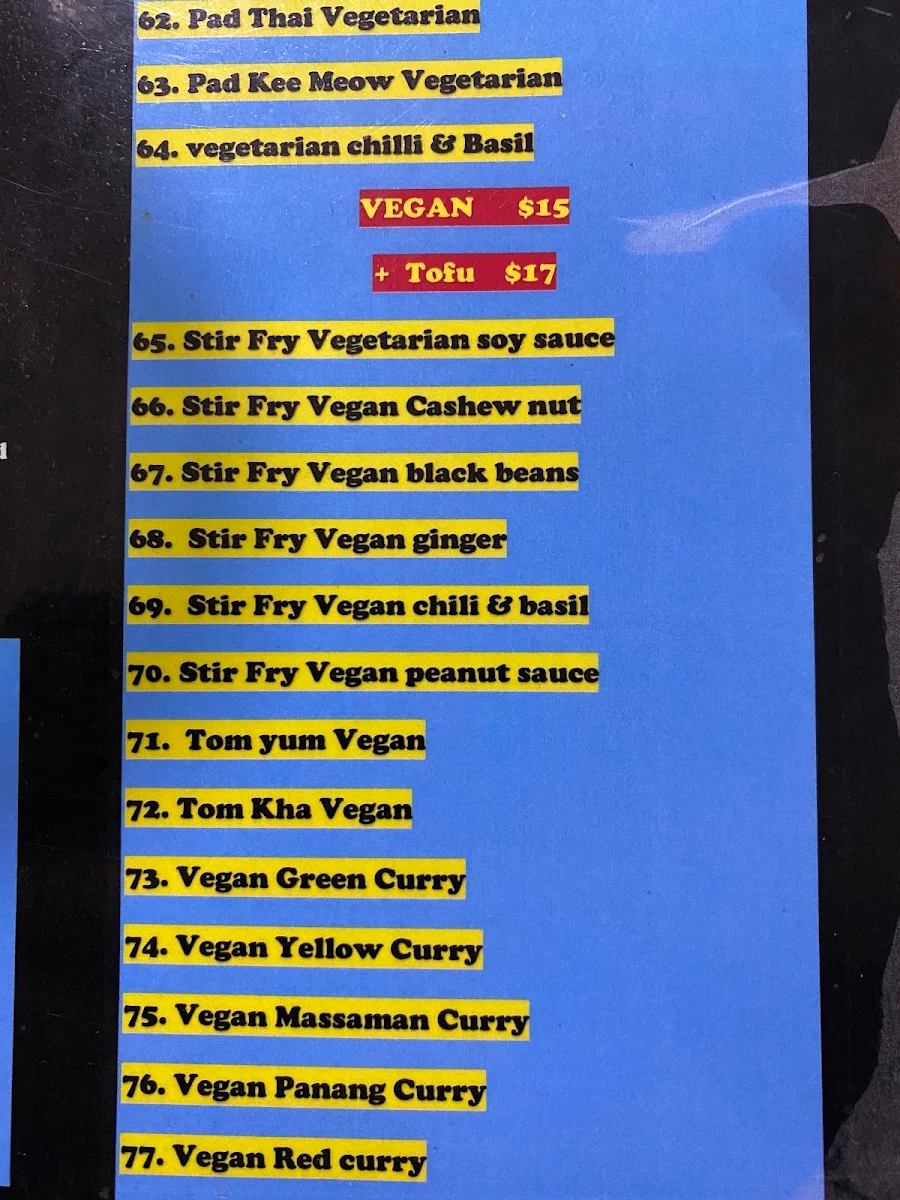 62. Pad Thai Vegetarian
63. Pad Kee Meow Vegetarian
64. vegetarian chilli & Basil
VEGAN $15
+ Tofu $17
65. Stir Fry Vegetarian soy sauce
66. Stir Fry Vegan Cashew nut
67. Stir Fry Vegan black beans
68. Stir Fry Vegan ginger
69. Stir Fry Vegan chili & basil
70. Stir Fry Vegan peanut sauce
71. Tom yum Vegan
72. Tom Kha Vegan
73. Vegan Green Curry
74. Vegan Yellow Curry
75. Vegan Massaman Curry
76. Vegan Panang Curry
77. Vegan Red curry